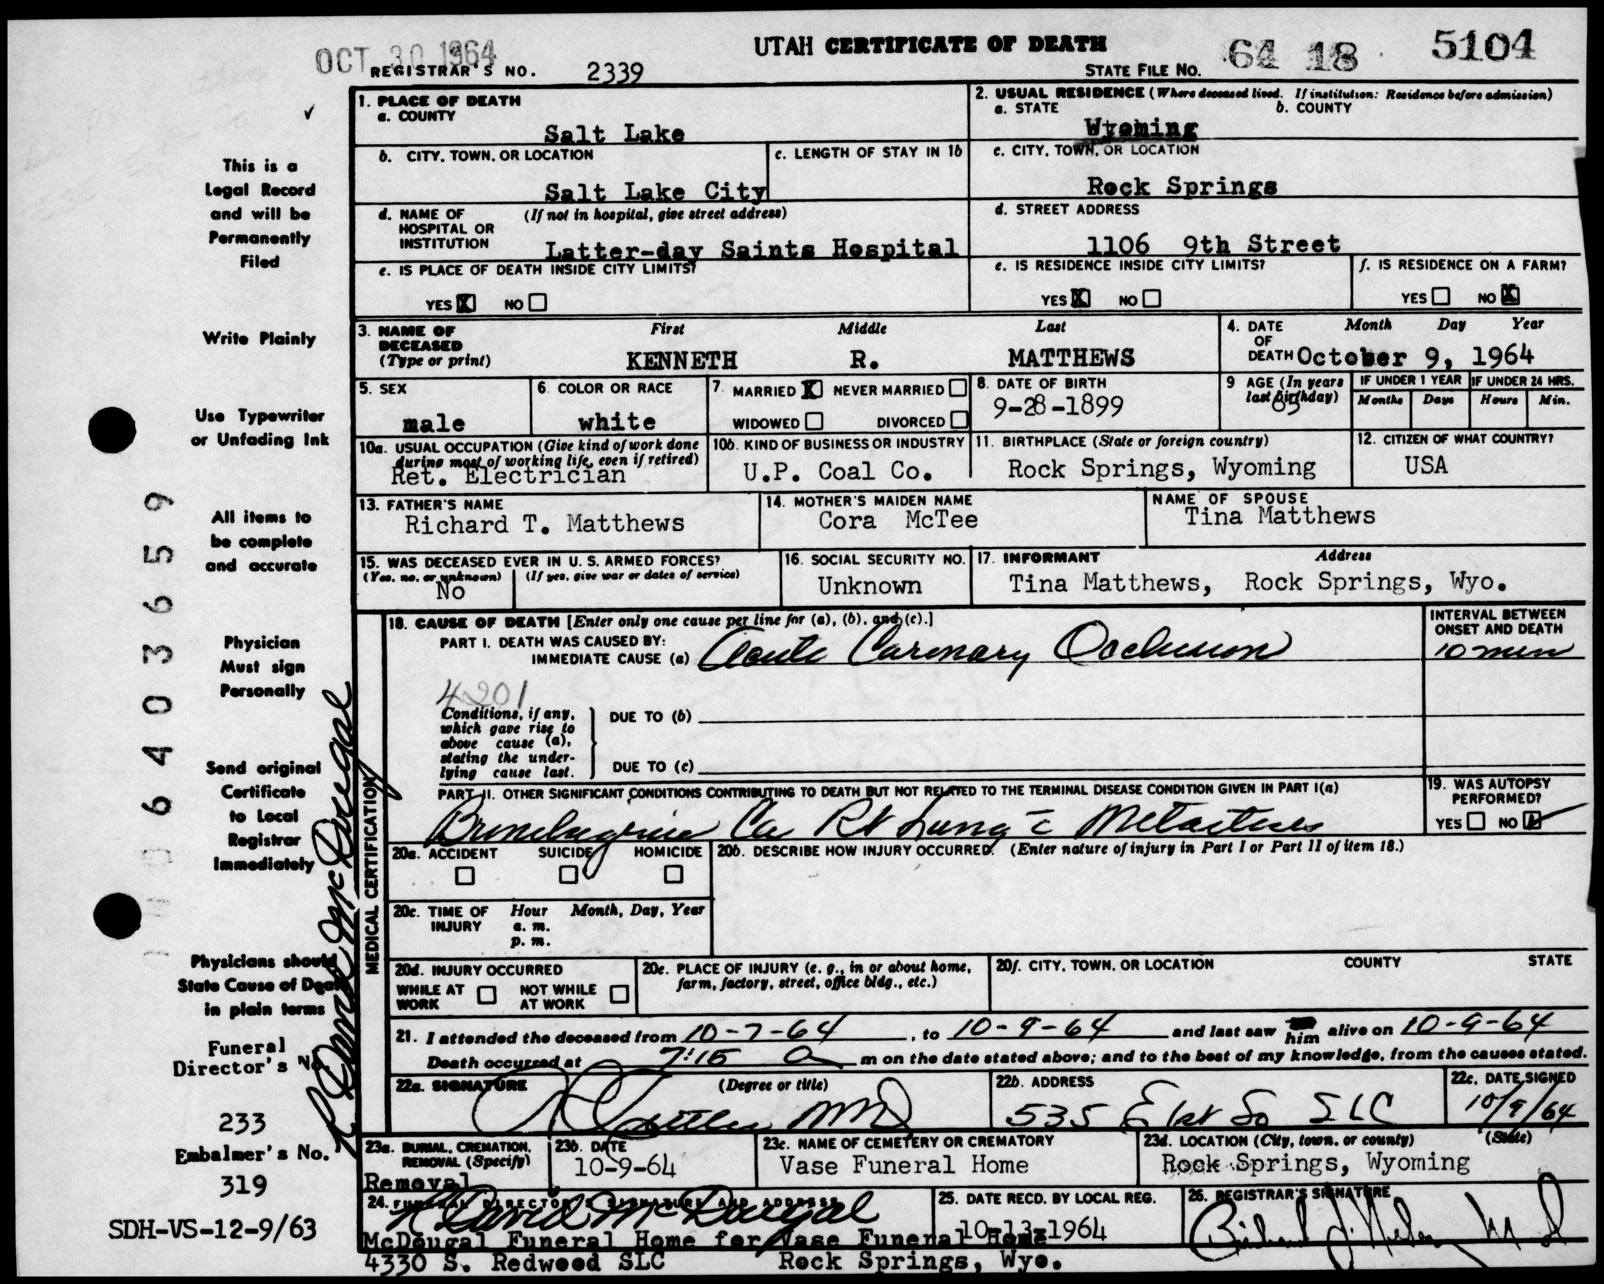 OCT 30 1964
UTAH CERTIFICATE OF DEATH
64 18 5104
REGISTRAR'S NO. 2339
STATE FILE NO.
This is a
Legal Record
and will be
Permanently
Filed
Write Plainly
Use Typewriter
or Unfading Ink
All items to
be complete
and accurate
Physician
Must sign
Personally
Send original
Certificate
to Local
Registrar
Immediately
Physicians should
State Cause of Death
in plain terms
Funeral
Director's No.
233
Embalmer's No.
319
SDH-VS-12-9/63
6403659
R David McDougal
MEDICAL CERTIFICATION
1. PLACE OF DEATH
a. COUNTY
Salt Lake
2. USUAL RESIDENCE (Where deceased lived. If institution: Residence before admission)
a. STATE b. COUNTY
Wyoming
b. CITY, TOWN, OR LOCATION
Salt Lake City
c. LENGTH OF STAY IN 1b
c. CITY, TOWN, OR LOCATION
Rock Springs
d. NAME OF HOSPITAL OR INSTITUTION (If not in hospital, give street address)
Latter-day Saints Hospital
d. STREET ADDRESS
1106 9th Street
e. IS PLACE OF DEATH INSIDE CITY LIMITS?
YES X NO
e. IS RESIDENCE INSIDE CITY LIMITS?
YES X NO
f. IS RESIDENCE ON A FARM?
YES NO X
3. NAME OF DECEASED (Type or print)
First Middle Last
KENNETH R. MATTHEWS
4. DATE OF DEATH Month Day Year
October 9, 1964
5. SEX
male
6. COLOR OR RACE
white
7. MARRIED X NEVER MARRIED
WIDOWED DIVORCED
8. DATE OF BIRTH
9-28-1899
9 AGE (In years last birthday)
65
IF UNDER 1 YEAR
Months Days
IF UNDER 24 HRS.
Hours Min.
10a. USUAL OCCUPATION (Give kind of work done during most of working life, even if retired)
Ret. Electrician
10b. KIND OF BUSINESS OR INDUSTRY
U.P. Coal Co.
11. BIRTHPLACE (State or foreign country)
Rock Springs, Wyoming
12. CITIZEN OF WHAT COUNTRY?
USA
13. FATHER'S NAME
Richard T. Matthews
14. MOTHER'S MAIDEN NAME
Cora McTee
NAME OF SPOUSE
Tina Matthews
15. WAS DECEASED EVER IN U.S. ARMED FORCES?
(Yes, no, or unknown) (If yes, give war or dates of service)
No
16. SOCIAL SECURITY NO.
Unknown
17. INFORMANT Address
Tina Matthews, Rock Springs, Wyo.
18. CAUSE OF DEATH [Enter only one cause per line for (a), (b), and (c).]
PART I. DEATH WAS CAUSED BY:
IMMEDIATE CAUSE (a) Acute Coronary Occlusion
INTERVAL BETWEEN ONSET AND DEATH
10 min
4201
Conditions, if any, which gave rise to above cause (a), stating the underlying cause last.
DUE TO (b)
DUE TO (c)
PART II. OTHER SIGNIFICANT CONDITIONS CONTRIBUTING TO DEATH BUT NOT RELATED TO THE TERMINAL DISEASE CONDITION GIVEN IN PART I(a)
Ca Rt Lung c̄ Metastases
19. WAS AUTOPSY PERFORMED?
YES NO
20a. ACCIDENT SUICIDE HOMICIDE
20b. DESCRIBE HOW INJURY OCCURRED. (Enter nature of injury in Part I or Part II of item 18.)
20c. TIME OF INJURY Hour Month, Day, Year
a. m.
p. m.
20d. INJURY OCCURRED
WHILE AT WORK NOT WHILE AT WORK
20e. PLACE OF INJURY (e. g., in or about home, farm, factory, street, office bldg., etc.)
20f. CITY, TOWN, OR LOCATION COUNTY STATE
21. I attended the deceased from 10-7-64, to 10-9-64 and last saw him alive on 10-9-64
Death occurred at 7:15 a m on the date stated above; and to the best of my knowledge, from the causes stated.
22a. SIGNATURE (Degree or title)
MD
22b. ADDRESS
535 E 1st So SLC
22c. DATE SIGNED
10/9/64
23a. BURIAL, CREMATION, REMOVAL (Specify)
Removal
23b. DATE
10-9-64
23c. NAME OF CEMETERY OR CREMATORY
Vase Funeral Home
23d. LOCATION (City, town, or county) (State)
Rock Springs, Wyoming
24. FUNERAL DIRECTOR'S SIGNATURE AND ADDRESS
R David McDougal
McDougal Funeral Home for Vase Funeral Home
4330 S. Redwood SLC Rock Springs, Wyo.
25. DATE RECD. BY LOCAL REG.
10-13-1964
26. REGISTRAR'S SIGNATURE